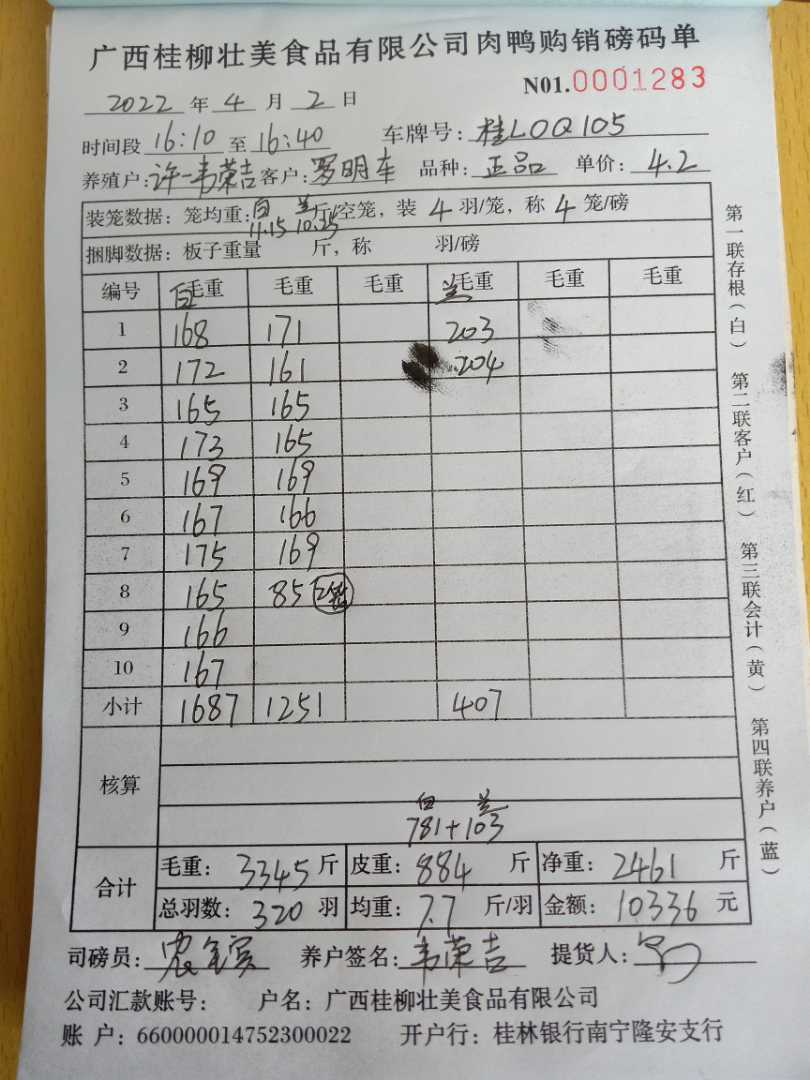 广西桂柳壮美食品有限公司肉鸭购销磅码单
N01.0001283
2022 年 4 月 2 日
时间段 16:10 至 16:40 车牌号: 桂L0Q105
养殖户: 许一韦荣吉 客户: 罗明车 品种: 正品 单价: 4.2
装笼数据: 笼均重: 白 11.15 兰 10.35 斤/空笼, 装 4 羽/笼, 称 4 笼/磅
捆脚数据: 板子重量 斤, 称 羽/磅
编号 白毛重 毛重 毛重 兰毛重 毛重 毛重
1 168 171 203
2 172 161 204
3 165 165
4 173 165
5 169 169
6 167 166
7 175 169
8 165 85
9 166
10 167
小计 1687 1251 407
核算
白 兰
781+103
合计 毛重: 3345 斤 皮重: 884 斤 净重: 2461 斤
总羽数: 320 羽 均重: 7.7 斤/羽 金额: 10336 元
司磅员: 养户签名: 韦荣吉 提货人:
公司汇款账号: 户名: 广西桂柳壮美食品有限公司
账 户: 660000014752300022 开户行: 桂林银行南宁隆安支行
第一联存根(白) 第二联客户(红) 第三联会计(黄) 第四联养户(蓝)